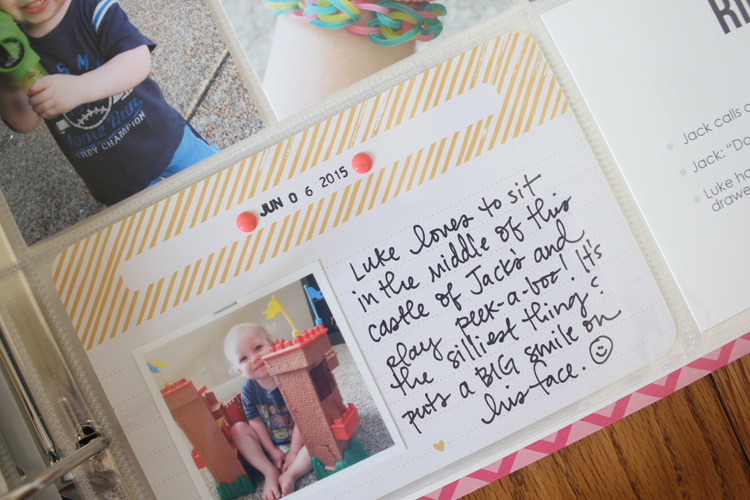 Home Run
DERBY CHAMPION
JUN 06 2015
Luke loves to sit
in the middle of this
castle of Jack's and
play peek-a-boo! It's
the silliest thing &
puts a BIG smile on
his face. ☺
Jack calls
Jack: "Do
Luke ha
drawe